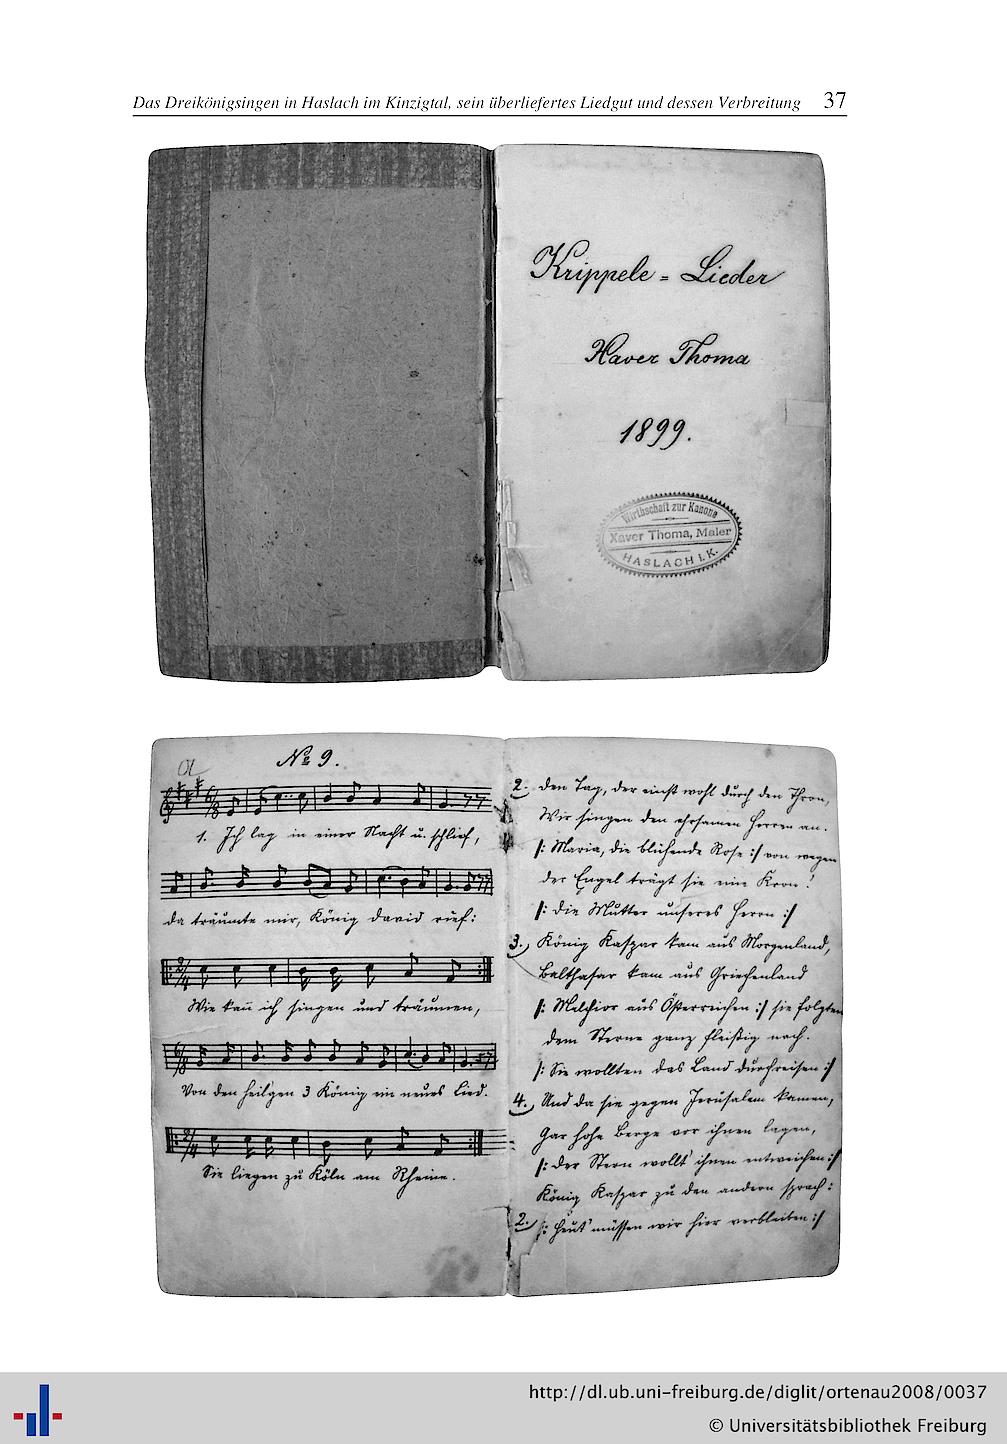 Das Dreikönigsingen in Haslach im Kinzigtal, sein überliefertes Liedgut und dessen Verbreitung 37
Krippele = Lieder
Xaver Thoma
1899.
Wirthschaft zur Kanone
Xaver Thoma, Maler
HASLACH i. K.
№ 9.
6/8
1. Ich lag in einer Nacht u. schlief,
da träumte mir, König David rief:
2/4
Wie kan̄ ich singen und träumen,
6/8
Von den heilgen 3 König ein neues Lied.
2/4
Sie liegen zu Köln am Rheine.
2. Den Tag, der einst wohl durch den Thron,
Wir singen den ehrsamen Herren an.
/: Maria, die blühende Rose :/ von wegen
der Engel trägt sie eine Kron!
/: Die Mutter unseres Herrn :/
3., König Kaspar kam aus Morgenland,
Balthasar kam aus Griechenland
/: Melchior aus Österreichen :/ sie folgten
dem Sterne ganz fleißig nach.
/: Sie wollten das Land durchreisen :/
4., Und da sie gegen Jerusalem kamen,
Gar hohe Berge vor ihnen lagen,
/: Der Stern wollt' ihnen entweichen :/
König Kaspar zu den andern sprach:
2., /: Heut' müssen wir hier verbleiben :/
http://dl.ub.uni-freiburg.de/diglit/ortenau2008/0037
© Universitätsbibliothek Freiburg